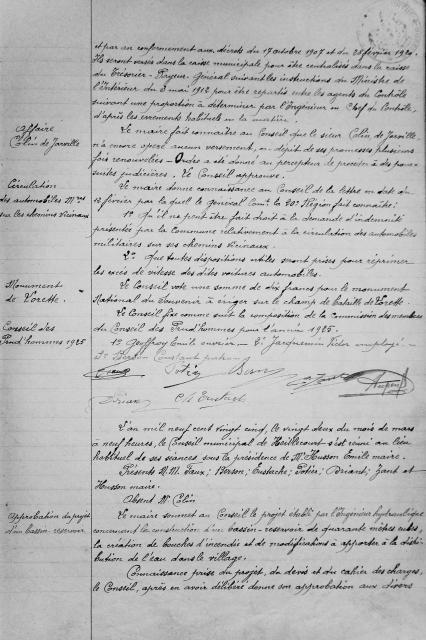 et par an conformément aux décrets du 17 octobre 1907 et du 28 février 1920.
Ils seront versés dans la caisse municipale pour être centralisés dans la caisse
du Trésorier-Payeur Général suivant les instructions du Ministre de
l'Intérieur du 3 mai 1912 pour être repartis entre les agents du Contrôle
suivant une proportion à déterminer par l'Ingénieur en Chef du Contrôle,
d'après les errements habituels en la matière.
Affaire
Colin de Jarville
Le maire fait connaître au Conseil que le sieur Colin, de Jarville
n'a encore opéré aucun versement, en dépit de ses promesses plusieurs
fois renouvelées - Ordre a été donné au percepteur de procéder à des pour-
suites judiciaires. Le Conseil approuve.
Circulation
des automobiles Mres
sur les chemins vicinaux
Le maire donne connaissance au Conseil de la lettre en date du
12 février par laquelle le général Comt la 20e Région fait connaître:
1° Qu'il ne peut être fait droit à la demande d'indemnité
présentée par la Commune relativement à la circulation des automobiles
militaires sur ses chemins vicinaux.
2° Que toutes dispositions utiles seront prises pour réprimer
les excès de vitesse des dites voitures automobiles.
Monument
de Lorette.
Le Conseil vote une somme de dix francs pour le monument
National du Souvenir à ériger sur le champ de bataille de Lorette.
Conseil des
Prud'hommes 1925
Le Conseil fixe comme suit la composition de la commission des membres
du Conseil des Prud'hommes pour l'année 1925.
1° Geoffroy Emile ouvrier - 2° Jacquemin Victor employé -
3° Constant patron
Potier Berson
Briant Ch Eustach
L'an mil neuf cent vingt cinq, le vingt deux du mois de mars
à neuf heures, le Conseil municipal de Heillecourt s'est réuni au lieu
habituel de ses séances sous la présidence de Mr Husson Emile maire.
Présents M.M. Faux; Berson; Eustache; Potier; Briant; Zant et
Husson maire.
Absent Mr Colin
Approbation du projet
d'un bassin-réservoir
Le maire soumet au Conseil le projet établi par l'Ingénieur hydraulique
concernant la construction d'un bassin-réservoir de quarante mètres cubes,
la création de bouches d'incendie et de modifications à apporter à la distri-
bution de l'eau dans le village.
Connaissance prise du projet, du devis et du cahier des charges,
le Conseil, après en avoir délibéré donne son approbation aux divers